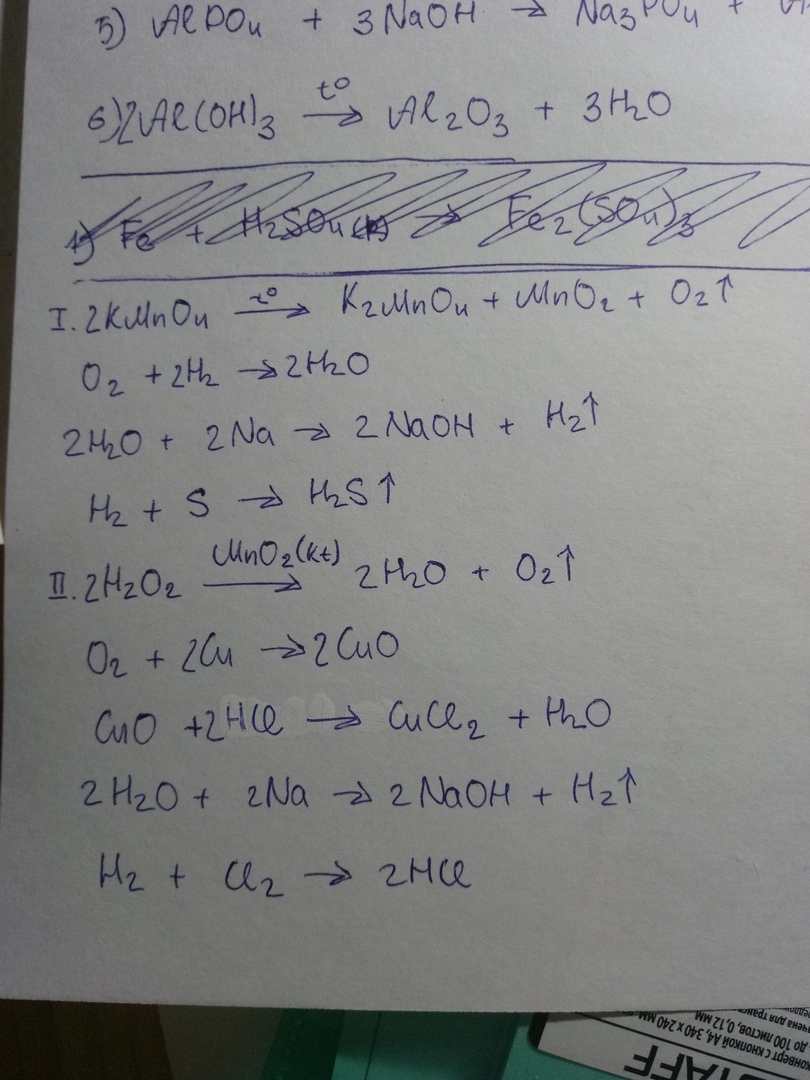 5) AlPO₄ + 3NaOH → Na₃PO₄ + A
6) 2Al(OH)₃ t° → Al₂O₃ + 3H₂O
1) Fe + H₂SO₄ → Fe₂(SO₄)₃
I. 2KMnO₄ t° → K₂MnO₄ + MnO₂ + O₂↑
O₂ + 2H₂ → 2H₂O
2H₂O + 2Na → 2NaOH + H₂↑
H₂ + S → H₂S↑
II. 2H₂O₂ MnO₂(kt) → 2H₂O + O₂↑
O₂ + 2Cu → 2CuO
CuO + 2HCl → CuCl₂ + H₂O
2H₂O + 2Na → 2NaOH + H₂↑
H₂ + Cl₂ → 2HCl
STAFF
конверт с кнопкой А4, 340 х 240 мм
до 100 листов, 0,12 мм